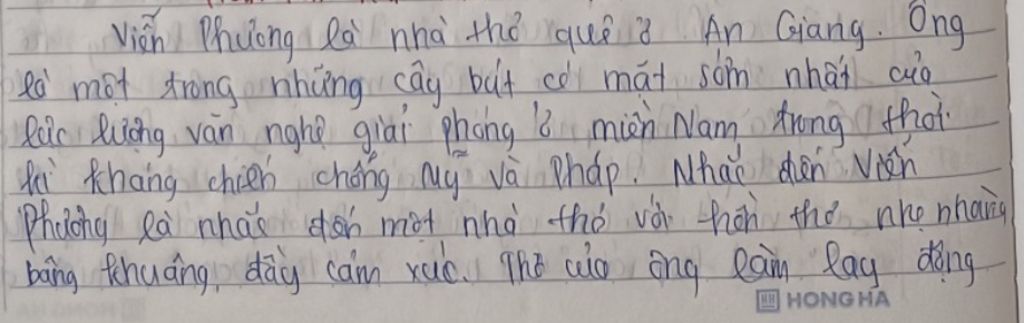 Viễn Phương là nhà thơ quê ở An Giang. Ông
là một trong những cây bút có mặt sớm nhất của
lực lượng văn nghệ giải phóng ở miền Nam trong thời
kì kháng chiến chống Mỹ và Pháp. Nhắc đến Viễn
Phương là nhắc đến một nhà thơ với hồn thơ nhẹ nhàng
bâng khuâng, đầy cảm xúc. Thơ của ông làm lay động
HONG HA